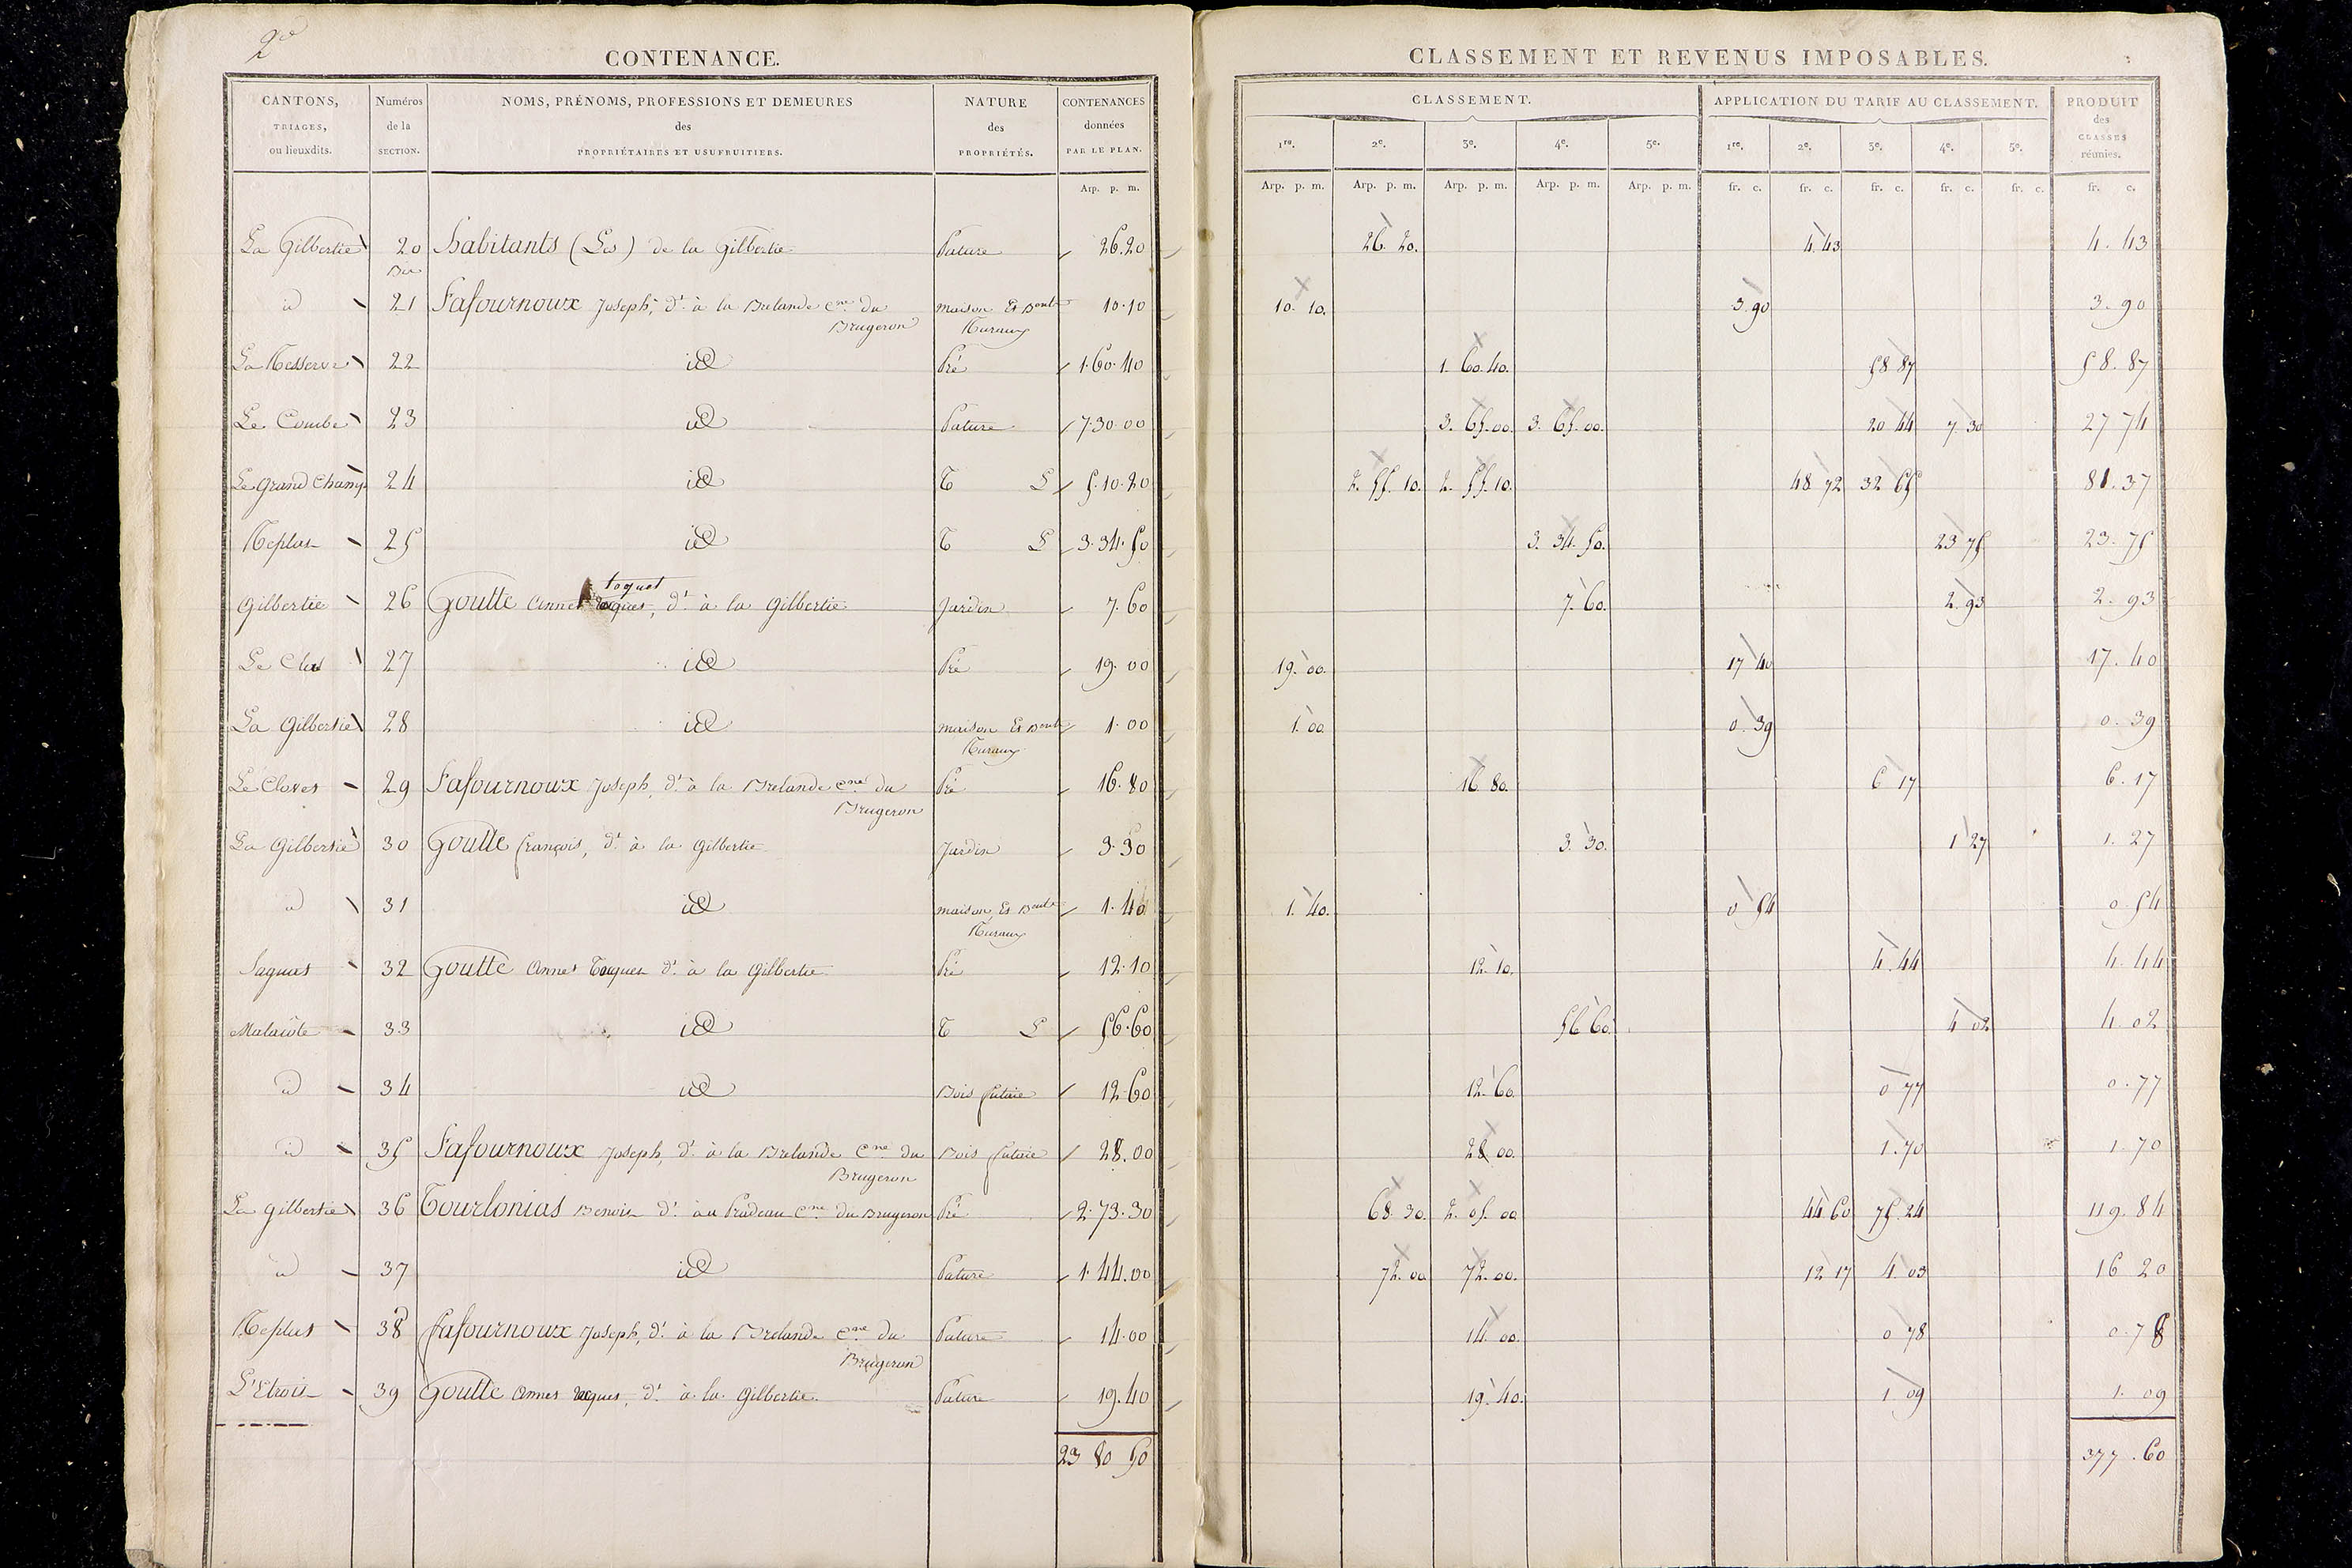 2e
CONTENANCE.
CANTONS, TRIAGES, ou lieuxdits. Numéros de la SECTION. NOMS, PRÉNOMS, PROFESSIONS ET DEMEURES des PROPRIÉTAIRES ET USUFRUITIERS. NATURE des PROPRIÉTÉS. CONTENANCES données PAR LE PLAN.
Arp. p. m.
CLASSEMENT ET REVENUS IMPOSABLES.
CLASSEMENT. APPLICATION DU TARIF AU CLASSEMENT. PRODUIT des CLASSES réunies.
1re. 2e. 3e. 4e. 5e. 1re. 2e. 3e. 4e. 5e.
Arp. p. m. Arp. p. m. Arp. p. m. Arp. p. m. Arp. p. m. fr. c. fr. c. fr. c. fr. c. fr. c. fr. c.
La Gilbertie 20 habitants (Les) de la Gilbertie Pature 26.20 26. 20. 4.43 4. 43
Bis
id 21 Fafournoux Joseph, dt à la Brelande cne du maison Et Bents 10.10 10. 10. 3.90 3.90
Brugeron Ruraux
La Resserve 22 id Pré 1.60.40 1. 60.40. 58 87 58. 87
Le Combe 23 id Pature 7.30.00 3. 65.00. 3. 65.00. 20 44 7.30 27 74
Le grand Champ 24 id T L 5.10.20 2. 55. 10. 2. 55. 10. 48 72 32 65 81.37
Replat 25 id T L 3.34.50 3. 34. 50. 23 75 23. 75
toquet
Gilbertie 26 Goutte Annet, dt à la Gilbertie Jardin 7.60 7. 60. 2.93 2. 93
Le Clos 27 id Pré 19.00 19. 00. 17 40 17. 40
La Gilbertie 28 id maison Et Bents 1.00 1. 00. 0.39 0. 39
Ruraux
Le Closes 29 Fafournoux Joseph, dt à la Brelande cne du Pré 16.80 16 80. 6 17 6. 17
Brugeron
La Gilbertie 30 Goutte françois, dt à la Gilbertie Jardin 3.30 3. 30. 1 27 1. 27
id 31 id maison Et Bents 1.40 1. 40. 0 54 0. 54
Ruraux
32 Goutte Annet dt à la Gilbertie Pré 12.10 12. 10. 4.44 4. 44
33 id T L 56.60 56 60. 4 02 4. 02
id 34 id Bois futaie 12.60 12. 60. 0 77 0.77
id 35 Fafournoux Joseph, dt à la Brelande Cne du Bois futaie 28.00 28 00. 1.70 1. 70
Brugeron
La gilbertie 36 Tourlonias Benoit dt au Pradeau Cne du Brugeron Pré 2.73.30 68. 30. 2. 05. 00 44 60 75.24 119. 84
id 37 id Pature 1.44.00 72. 00 72. 00. 12 17 4. 03 16 20
Replat 38 fafournoux Joseph, dt à la Brelande cne du Pature 14.00 14. 00. 0 78 0.78
Brugeron
L'Etroit 39 Goutte Annet, dt à la Gilbertie. Pature 19.40 19. 40. 1 09 1. 09
23 80 50 377.60